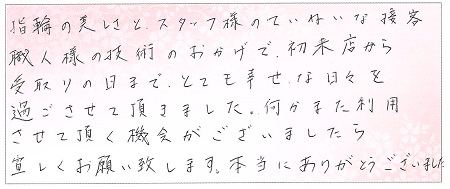 指輪の美しさと、スタッフ様のていねいな接客
職人様の技術のおかげで、初来店から
受取りの日まで、とても幸せな日々を
過ごさせて頂きました。何かまた利用
させて頂く機会がございましたら
宜しくお願い致します。本当にありがとうございました